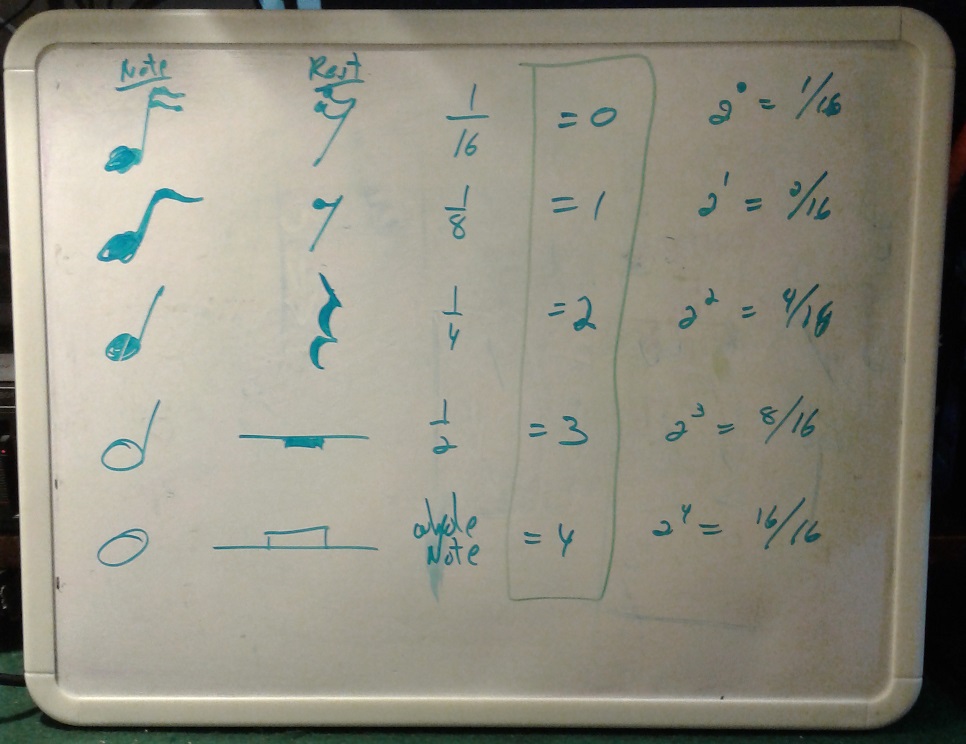 Note Rest
1/16 = 0 2⁰ = 1/16
1/8 = 1 2¹ = 2/16
1/4 = 2 2² = 4/16
1/2 = 3 2³ = 8/16
whole
Note = 4 2⁴ = 16/16